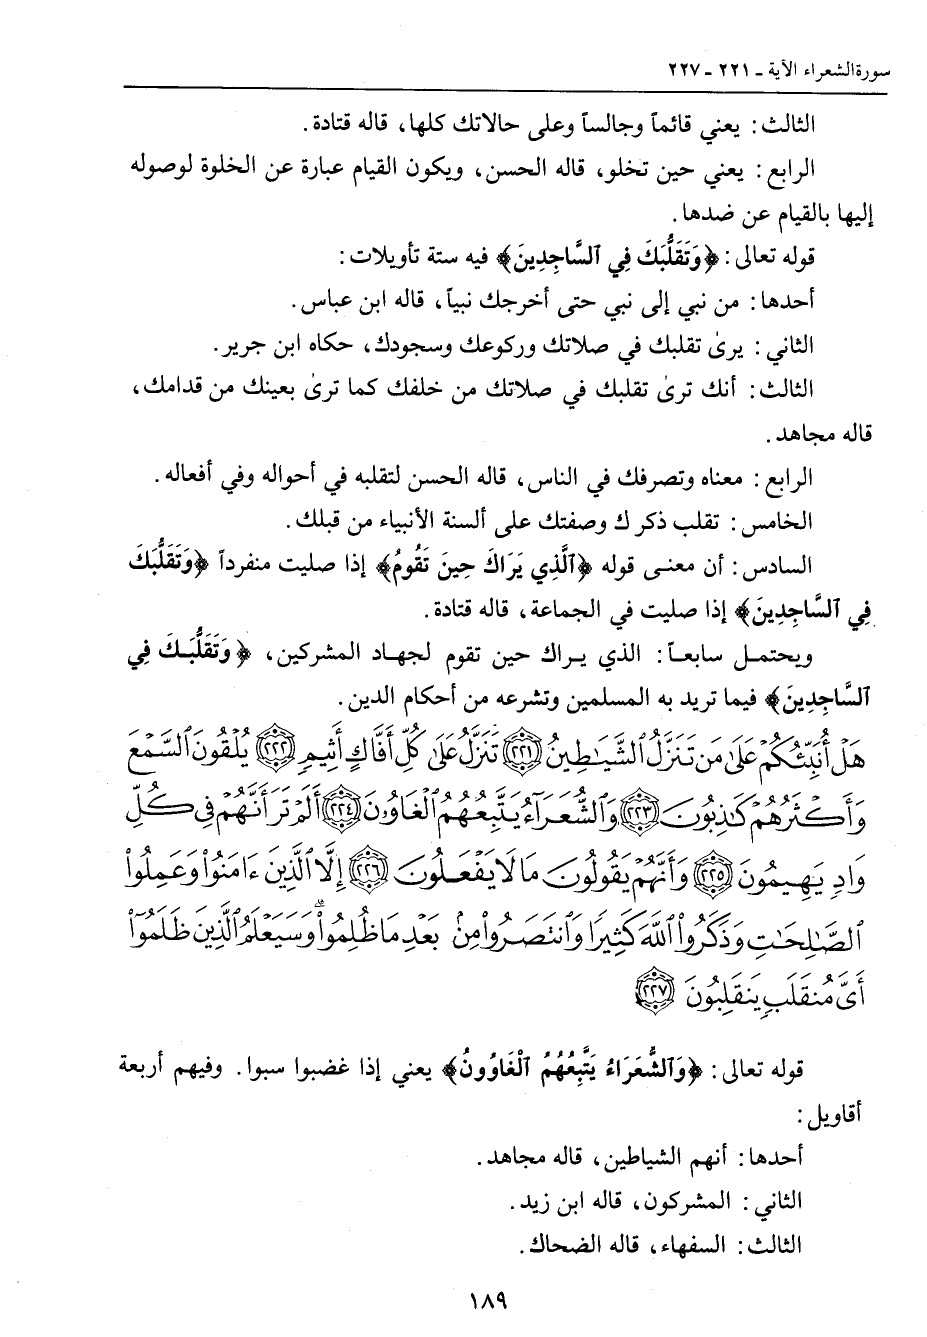 سورة الشعراء الآية ـ ٢٢١ ـ ٢٢٧
الثالث: يعني قائماً وجالساً وعلى حالاتك كلها، قاله قتادة.
الرابع: يعني حين تخلو، قاله الحسن، ويكون القيام عبارة عن الخلوة لوصوله
إليها بالقيام عن ضدها.
قوله تعالى: ﴿وَتَقَلُّبَكَ فِي ٱلسَّاجِدِينَ﴾ فيه ستة تأويلات:
أحدها: من نبي إلى نبي حتى أخرجك نبياً، قاله ابن عباس.
الثاني: يرىٰ تقلبك في صلاتك وركوعك وسجودك، حكاه ابن جرير.
الثالث: أنك ترىٰ تقلبك في صلاتك من خلفك كما ترىٰ بعينك من قدامك،
قاله مجاهد.
الرابع: معناه وتصرفك في الناس، قاله الحسن لتقلبه في أحواله وفي أفعاله.
الخامس: تقلب ذكرك وصفتك على ألسنة الأنبياء من قبلك.
السادس: أن معنى قوله ﴿ٱلَّذِي يَرَاكَ حِينَ تَقُومُ﴾ إذا صليت منفرداً ﴿وَتَقَلُّبَكَ
فِي ٱلسَّاجِدِينَ﴾ إذا صليت في الجماعة، قاله قتادة.
ويحتمل سابعاً: الذي يراك حين تقوم لجهاد المشركين، ﴿وَتَقَلُّبَكَ فِي
ٱلسَّاجِدِينَ﴾ فيما تريد به المسلمين وتشرعه من أحكام الدين.
هَلۡ أُنَبِّئُكُمۡ عَلَىٰ مَن تَنَزَّلُ ٱلشَّيَٰطِينُ ٢٢١ تَنَزَّلُ عَلَىٰ كُلِّ أَفَّاكٍ أَثِيمٖ ٢٢٢ يُلۡقُونَ ٱلسَّمۡعَ
وَأَكۡثَرُهُمۡ كَٰذِبُونَ ٢٢٣ وَٱلشُّعَرَآءُ يَتَّبِعُهُمُ ٱلۡغَاوُۥنَ ٢٢٤ أَلَمۡ تَرَ أَنَّهُمۡ فِي كُلِّ
وَادٖ يَهِيمُونَ ٢٢٥ وَأَنَّهُمۡ يَقُولُونَ مَا لَا يَفۡعَلُونَ ٢٢٦ إِلَّا ٱلَّذِينَ ءَامَنُواْ وَعَمِلُواْ
ٱلصَّٰلِحَٰتِ وَذَكَرُواْ ٱللَّهَ كَثِيرٗا وَٱنتَصَرُواْ مِنۢ بَعۡدِ مَا ظُلِمُواْۗ وَسَيَعۡلَمُ ٱلَّذِينَ ظَلَمُوٓاْ
أَيَّ مُنقَلَبٖ يَنقَلِبُونَ ٢٢٧
قوله تعالى: ﴿وَٱلشُّعَرَاءُ يَتَّبِعُهُمُ ٱلْغَاوُونُ﴾ يعني إذا غضبوا سبوا. وفيهم أربعة
أقاويل:
أحدها: أنهم الشياطين، قاله مجاهد.
الثاني: المشركون، قاله ابن زيد.
الثالث: السفهاء، قاله الضحاك.
١٨٩